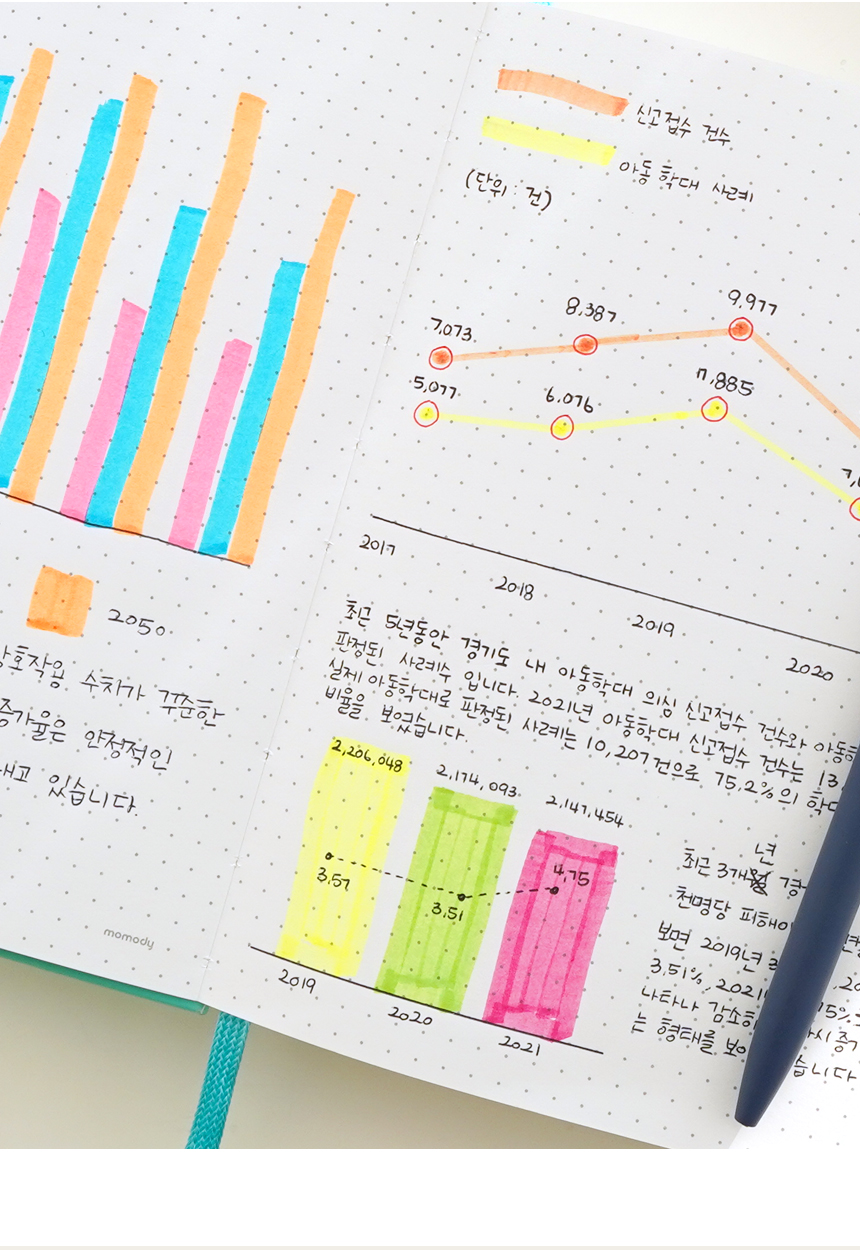 2050
상호작용 수치가 꾸준한
증가율은 안정적인
내고 있습니다.
momody
신고접수 건수
아동학대 사례
(단위 : 건)
7,073
8,387
9,977
5,077
6,076
7,885
2017
2018
2019
2020
최근 5년동안 경기도 내 아동학대 의심 신고접수 건수와 아동학
판정된 사례수 입니다. 2021년 아동학대 신고접수 건수는 13,
실제 아동학대로 판정된 사례는 10,207건으로 75.2%의 학대
비율을 보였습니다.
2,206,048
2,174,093
2,147,454
3.57
3.51
4.75
2019
2020
2021
년
최근 3개 경
천명당 피해
보면 2019년
3.51%, 2021
나타나 감소
는 형태를 보
습니다